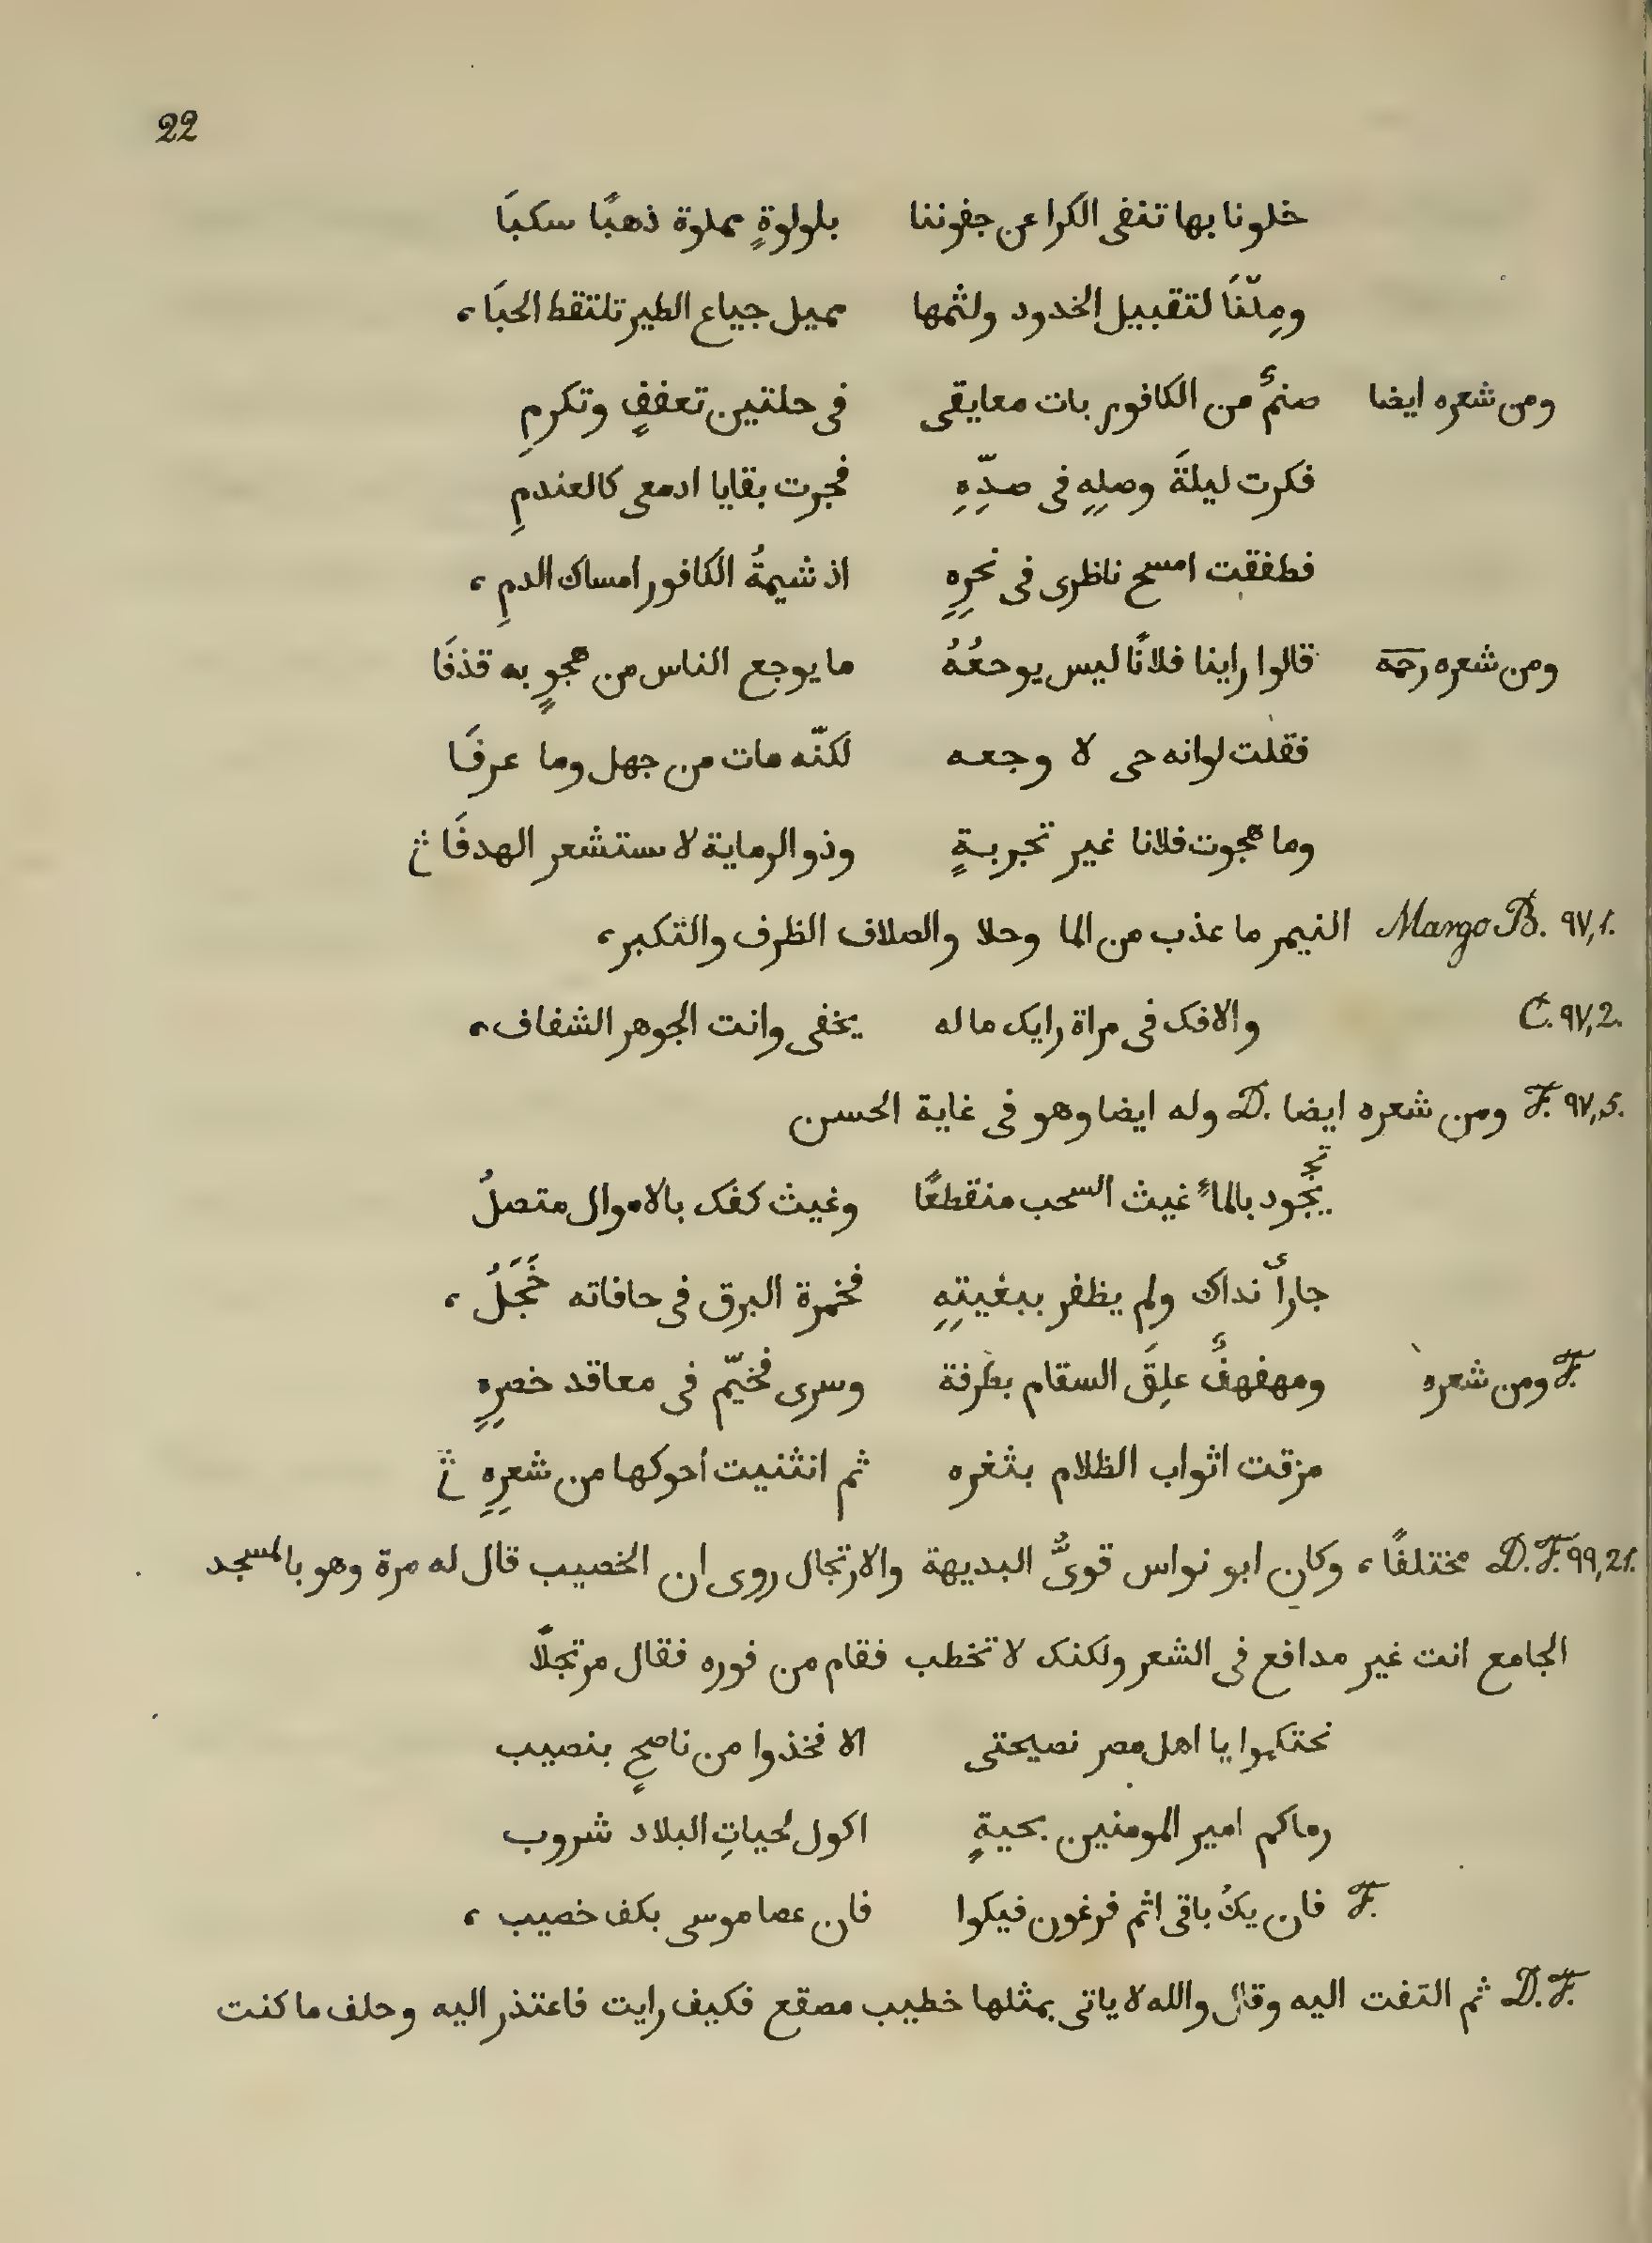 22
خلونا بها تنفى الكرا عن جفوننا بلولوةٍ مملوة ذهبًا سكبَا
ومِلْنَا لتقبيل الخدود ولثمها مميل جياع الطير تلتقط الحبَا،
ومن شعره ايضا صنمٌ من الكافور بات معايقى فى حلتين تعففٍ وتكرمِ
فكرت ليلةَ وصلِهِ فى صدِّهِ فجرت بقايا ادمعى كالعندمِ
فطفقت امسح ناظرى فى نحرِهِ اذ شيمةُ الكافور امساك الدمِ،
ومن شعره رحمه قالوا راينا فلانًا ليس يوجعُهُ ما يوجع الناس من هجوٍ به قذفَا
فقلت لو انه حى لا وجعه لكنّه مات من جهل وما عرفَا
وما هجوت فلانا غير تجربةٍ وذو الرماية لا ستشعر الهدفَا
Margo B. ٩٧,1. النيمر ما عذب من الما وحلا والصلاف الظرف والتكبر،
C. ٩٧,2. والافك فى مراة رايك ما له يخفى وانت الجوهر الشفاف،
F. ٩٧,5. ومن شعره ايضا D. وله ايضا وهو فى غاية الحسن
تج
يجُود بالماءِ غيث السحب منقطعًا وغيث كفك بالاموال متصلُ
جارأ نداك ولم يظفر ببغيتِهِ فخمرة البرق فى حافاته خَجَلُ،
F. ومن شعره ومهفهفٌ علِقَ السقام بطرفة وسرى فخيّم فى معاقد خصرِهِ
مزقت اثواب الظلام بثغره ثم انثنيت أحوكها من شعرِهِ
D. F. ٩٩,21. مختلفًا، وكان ابو نواس قوىُّ البديهة والارتجال روى ان الخصيب قال له مرة وهو بالمسجد
الجامع انت غير مدافع فى الشعر ولكنك لا تخطب فقام من فوره فقال مرتجلًا
يا اهل مصر نصيحتى الا فخذوا من ناصحٍ بنصيب
رماكم امير المومنين بحيةٍ اكول لحياتِ البلاد شروب
F. فان يكُ باقى اثم فرغون فيكوا فان عصا موسى بكف خصيب،
D. F. ثم التفت اليه وقال والله لا ياتى بمثلها خطيب مصقع فكيف رايت فاعتذر اليه وحلف ما كنت